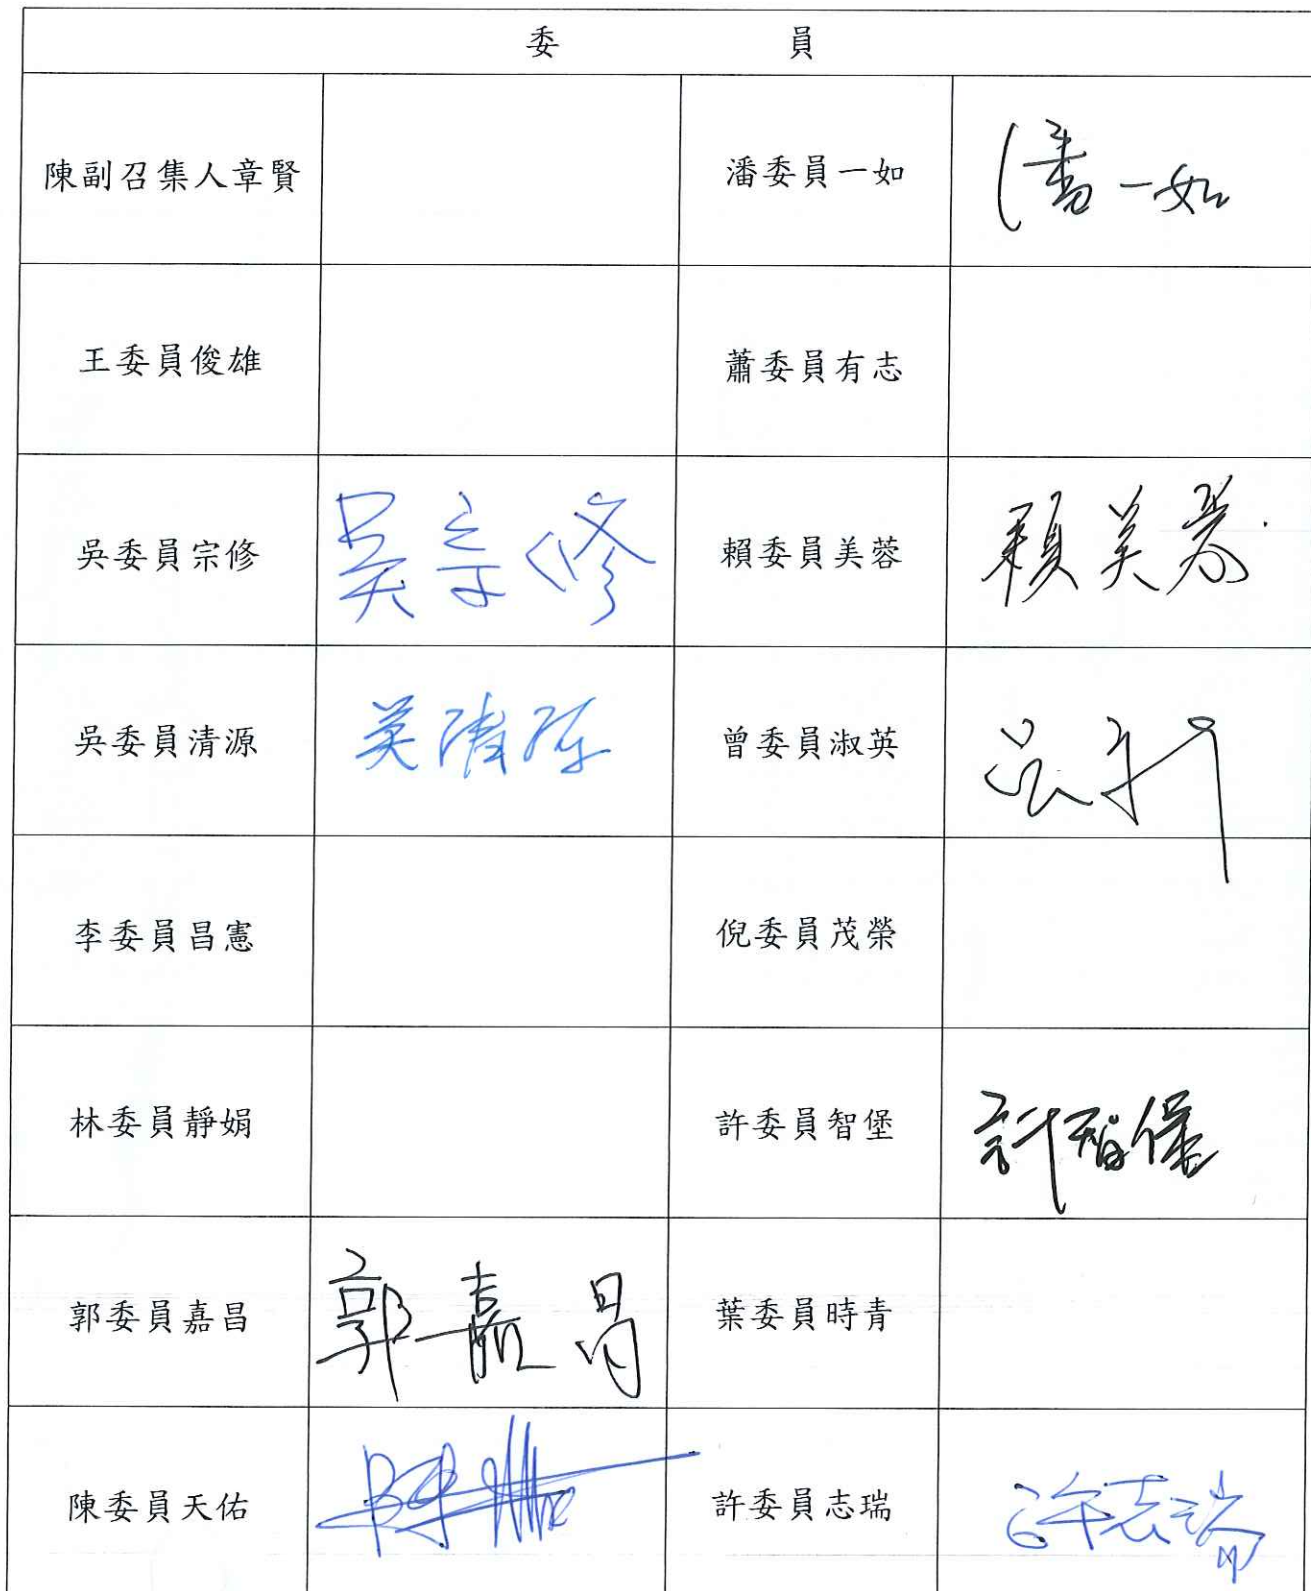 委 員
陳副召集人章賢 潘委員一如 潘一如
王委員俊雄 蕭委員有志
吳委員宗修 吳宗修 賴委員美蓉 賴美蓉
吳委員清源 吳清源 曾委員淑英
李委員昌憲 倪委員茂榮
林委員靜娟 許委員智堡 許智堡
郭委員嘉昌 郭嘉昌 葉委員時青
陳委員天佑 許委員志瑞 許志瑞